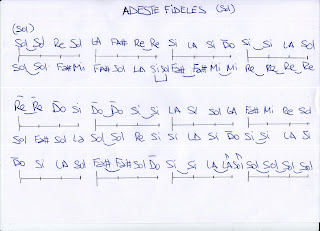 ADESTE FIDELES (Sol)
(Sol)
Sol Sol Re Sol LA FA# Re Re Si LA Si D̅o̅ Si Si LA Sol
Sol Sol FA# Mi FA# Sol LA Si Sol FA# FA# Mi Mi Re Re Re Re
R̅e̅ R̅e̅ D̅o̅ Si D̅o̅ D̅o̅ Si Si LA LA Si Sol LA FA# Mi Re Sol
Sol FA# Sol LA Sol Sol Re Si Si LA Si D̅o̅ Si Si LA Si
D̅o̅ Si LA Sol FA# FA# Sol D̅o̅ Si Si LA LA Sol Sol Sol Sol Sol